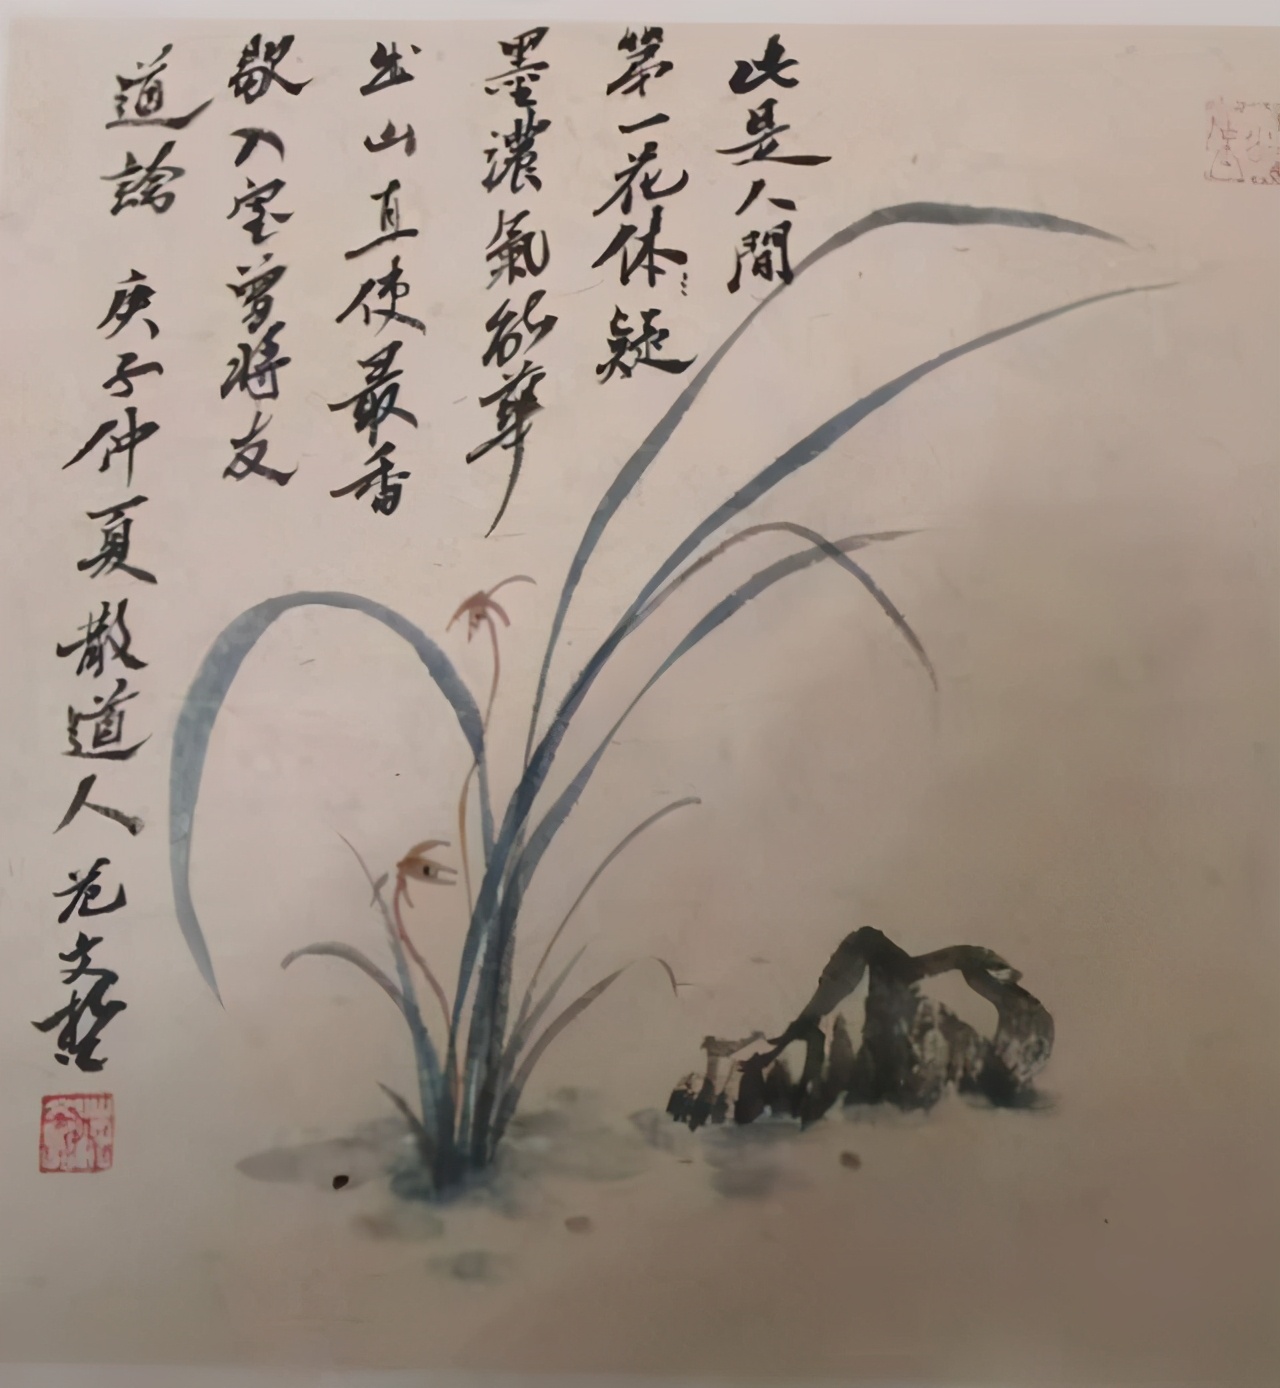 此是人間
第一花休疑
墨濃氣能華
出山直使最香
歇入室曾將友
道論 庚子仲夏散道人 范文